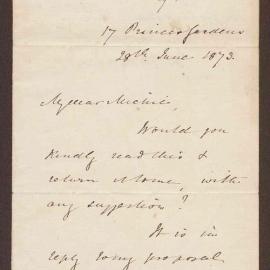 17 Princes Gardens
28th June 1873.
My dear Michie,
Would you
kindly read this &
return it to me, with
any suggestion?
It is in
reply to my proposal